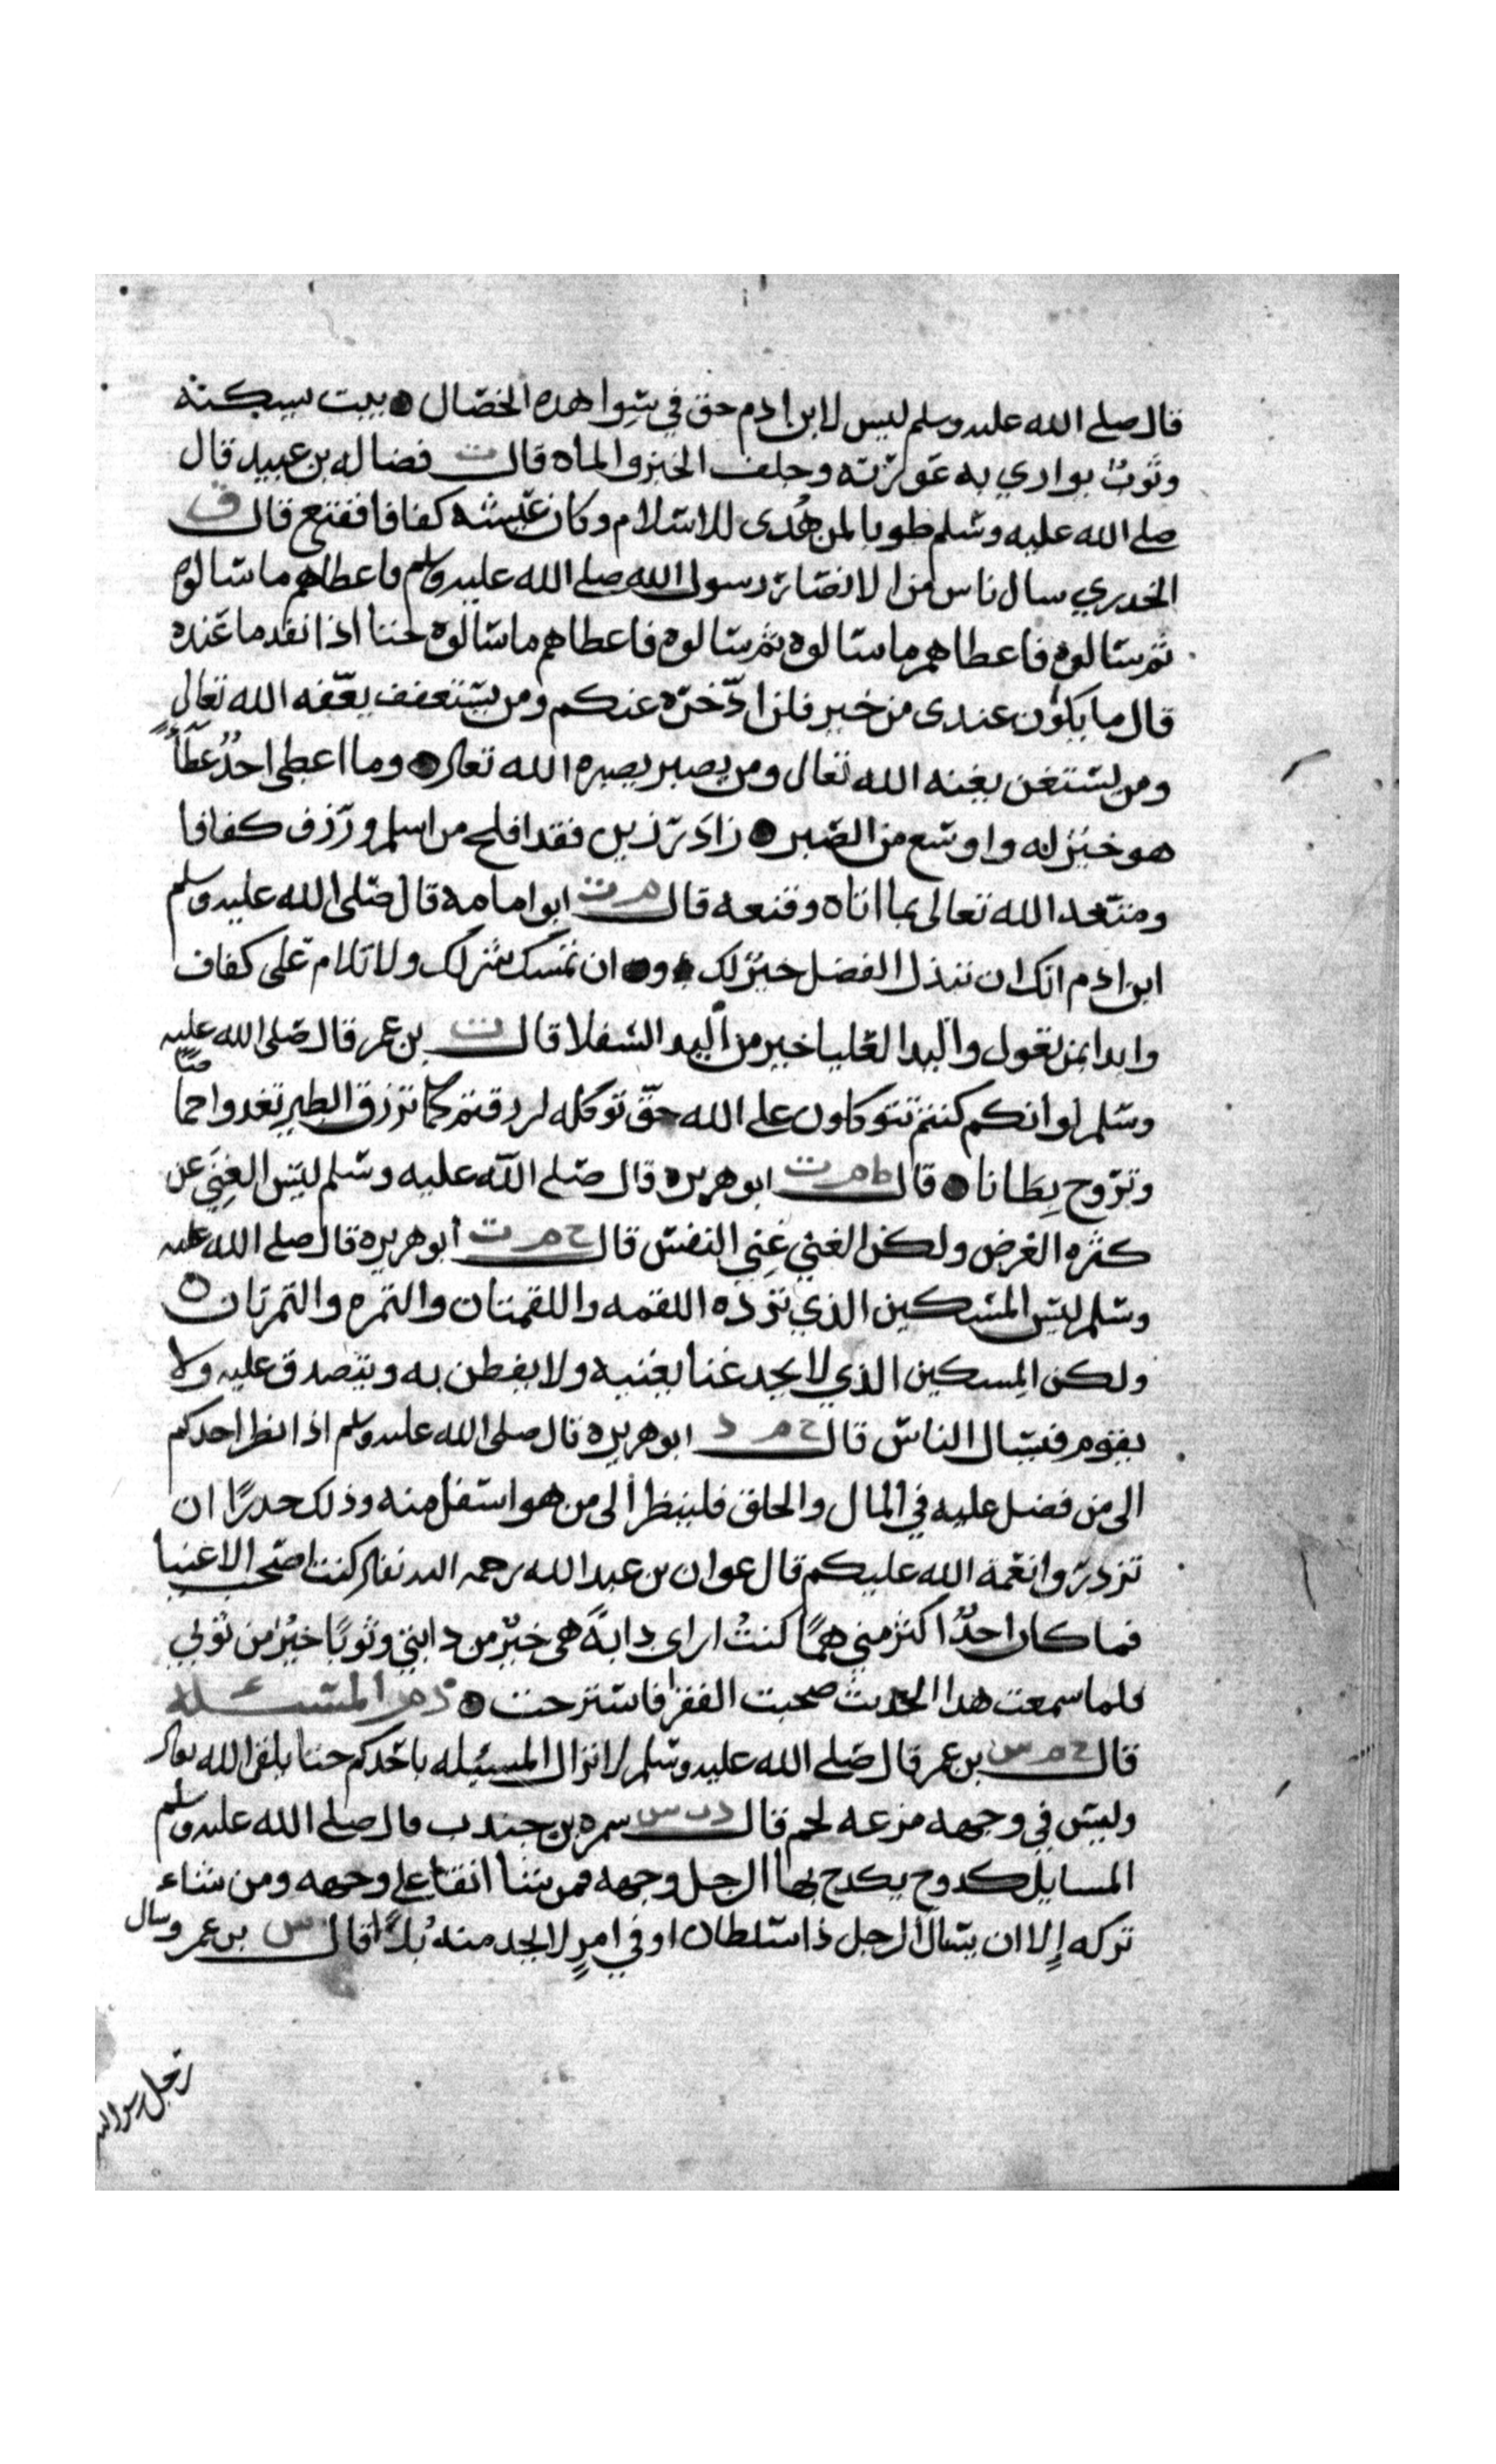 قال صلى الله عليه وسلم ليس لابن ادم حق في سوا هذه الخصال ● بيت يسكنه
وثوبٌ يواري به عورته وجلف الخبز والماء قال ت فضاله بن عبيد قال
صلى الله عليه وسلم طوبا لمن هُدى للاسلام وكان عيشه كفافا فقنع قال ق
الخدري سال ناس من الانصار رسول الله صلى الله عليه وسلم فاعطاهم ما سالوه
ثم سالوه فاعطاهم ما سالوه ثم سالوه فاعطاهم ما سالوه حتنا اذا نفد ما عنده
قال ما يكون عندى من خير فلن ادّخره عنكم ومن يستعفف يعّفه الله تعالى
ومن يستغن يغنه الله تعالى ومن يصبر يصبره الله تعالى ● وما اعطى احدٌ عطآءً
هو خيرٌ له واوسع من الصبر ● زاد رزين فقد افلح من اسلم ورزق كفافا
ومتعه الله تعالى بما اتاه وقنعه قال م ت ابو امامه قال صلى الله عليه وسلم
ابن ادم انك ان تبذل الفضل خيرٌ لك ● و● ان تمسك شر لك ولا تلام على كفاف
وابدا بمن تعول واليد العليا خير من اليد السفلا قال ت بن عمر قال صلى الله عليه
وسلم لو انكم كنتم تتوكلون على الله حقّ توكله لرزقتم كما ترزق الطير تغدوا خماصًا
وتروح بِطانا ● قال ط م ت ابو هريره قال صلى الله عليه وسلم ليس الغِنَي عن
كثره العرض ولكن الغني غِني النفس قال خ م ت ابو هريره قال صلى الله عليه
وسلم ليس المسكين الذي تردّه اللقمه واللقمتان والتمره والتمرتان ه
ولكن المِسكين الذي لا يجد غنا يغنيه ولا يفطن به ويتصدق عليه ولا
يقوم فيسال الناس قال خ م د ابو هريره قال صلى الله عليه وسلم اذا نظر احدكم
الى من فضل عليه في المال والخلق فلينظر الى من هو اسفل منه وذلك حدرًا ان
تزدروا نعمة الله عليكم قال عوان بن عبد الله رحمه الله تعالى كنت اصحب الاغنيا
فما كان احدٌ اكثر مني همًّا كنتُ ارى دابةً هى خيرٌ من دابتي وثوبًا خيرٌ من ثوبي
فلما سمعت هدا الحديث صحبت الفقرا فاسترحت ● ذم المسئله
قال خ م س بن عمر قال صلى الله عليه وسلم لا تزال المسيله باحدكم حتا يلقى الله تعالى
وليس في وجهه مزعه لحم قال د ت س سمره بن جندب قال صلى الله عليه وسلم
المسايل كدوح يكدح بها الرجل وجهه فمن شا ابقا على وجهه ومن شاء
تركه إلا ان يسال الرجل ذا سلطان او في امرٍ لا يجد منه بُدًّا قال س بن عمر وسال
رجل رسول الله